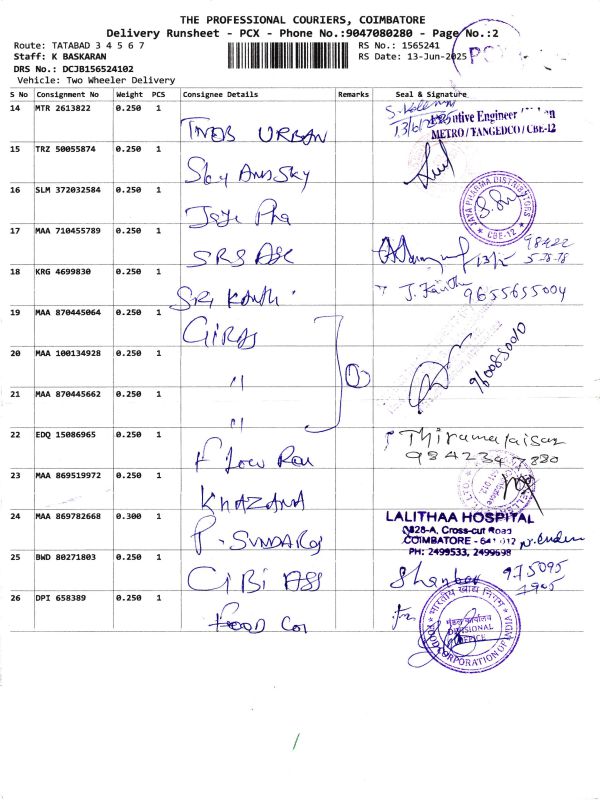 THE PROFESSIONAL COURIERS, COIMBATORE
Delivery Runsheet - PCX - Phone No.:9047080280 - Page No.:2
Route: TATABAD 3 4 5 6 7
RS No.: 1565241
Staff: K BASKARAN
RS Date: 13-Jun-2025
DRS No.: DCJB156524102
Vehicle: Two Wheeler Delivery
S No Consignment No Weight PCS Consignee Details Remarks Seal & Signature
14 MTR 2613822 0.250 1
TNEB URBAN
Executive Engineer
METRO / TANGEDCO / CBE-12
15 TRZ 50055874 0.250 1
Sky And Sky
16 SLM 372032584 0.250 1
Jaya Pha
JAYA PHARMA DISTRIBUTORS
CBE-12
17 MAA 710455789 0.250 1
SRS
18 KRG 4699830 0.250 1
Sri
J. 9655655004
19 MAA 870445064 0.250 1
GIRAS
20 MAA 100134928 0.250 1
"
9600850010
21 MAA 870445662 0.250 1
"
22 EDQ 15086965 0.250 1
Flow
9842347880
23 MAA 869519972 0.250 1
KHAZANA
24 MAA 869782668 0.300 1
P. SUNDARAJ
LALITHAA HOSPITAL
#328-A, Cross-cut Road
COIMBATORE - 641 012
PH: 2499533, 2499698
25 BWD 80271803 0.250 1
GBi ASS
975095
26 DPI 658389 0.250 1
FOOD COR
भारतीय खाद्य निगम
मंडल कार्यालय
DIVISIONAL
OFFICE
FOOD CORPORATION OF INDIA